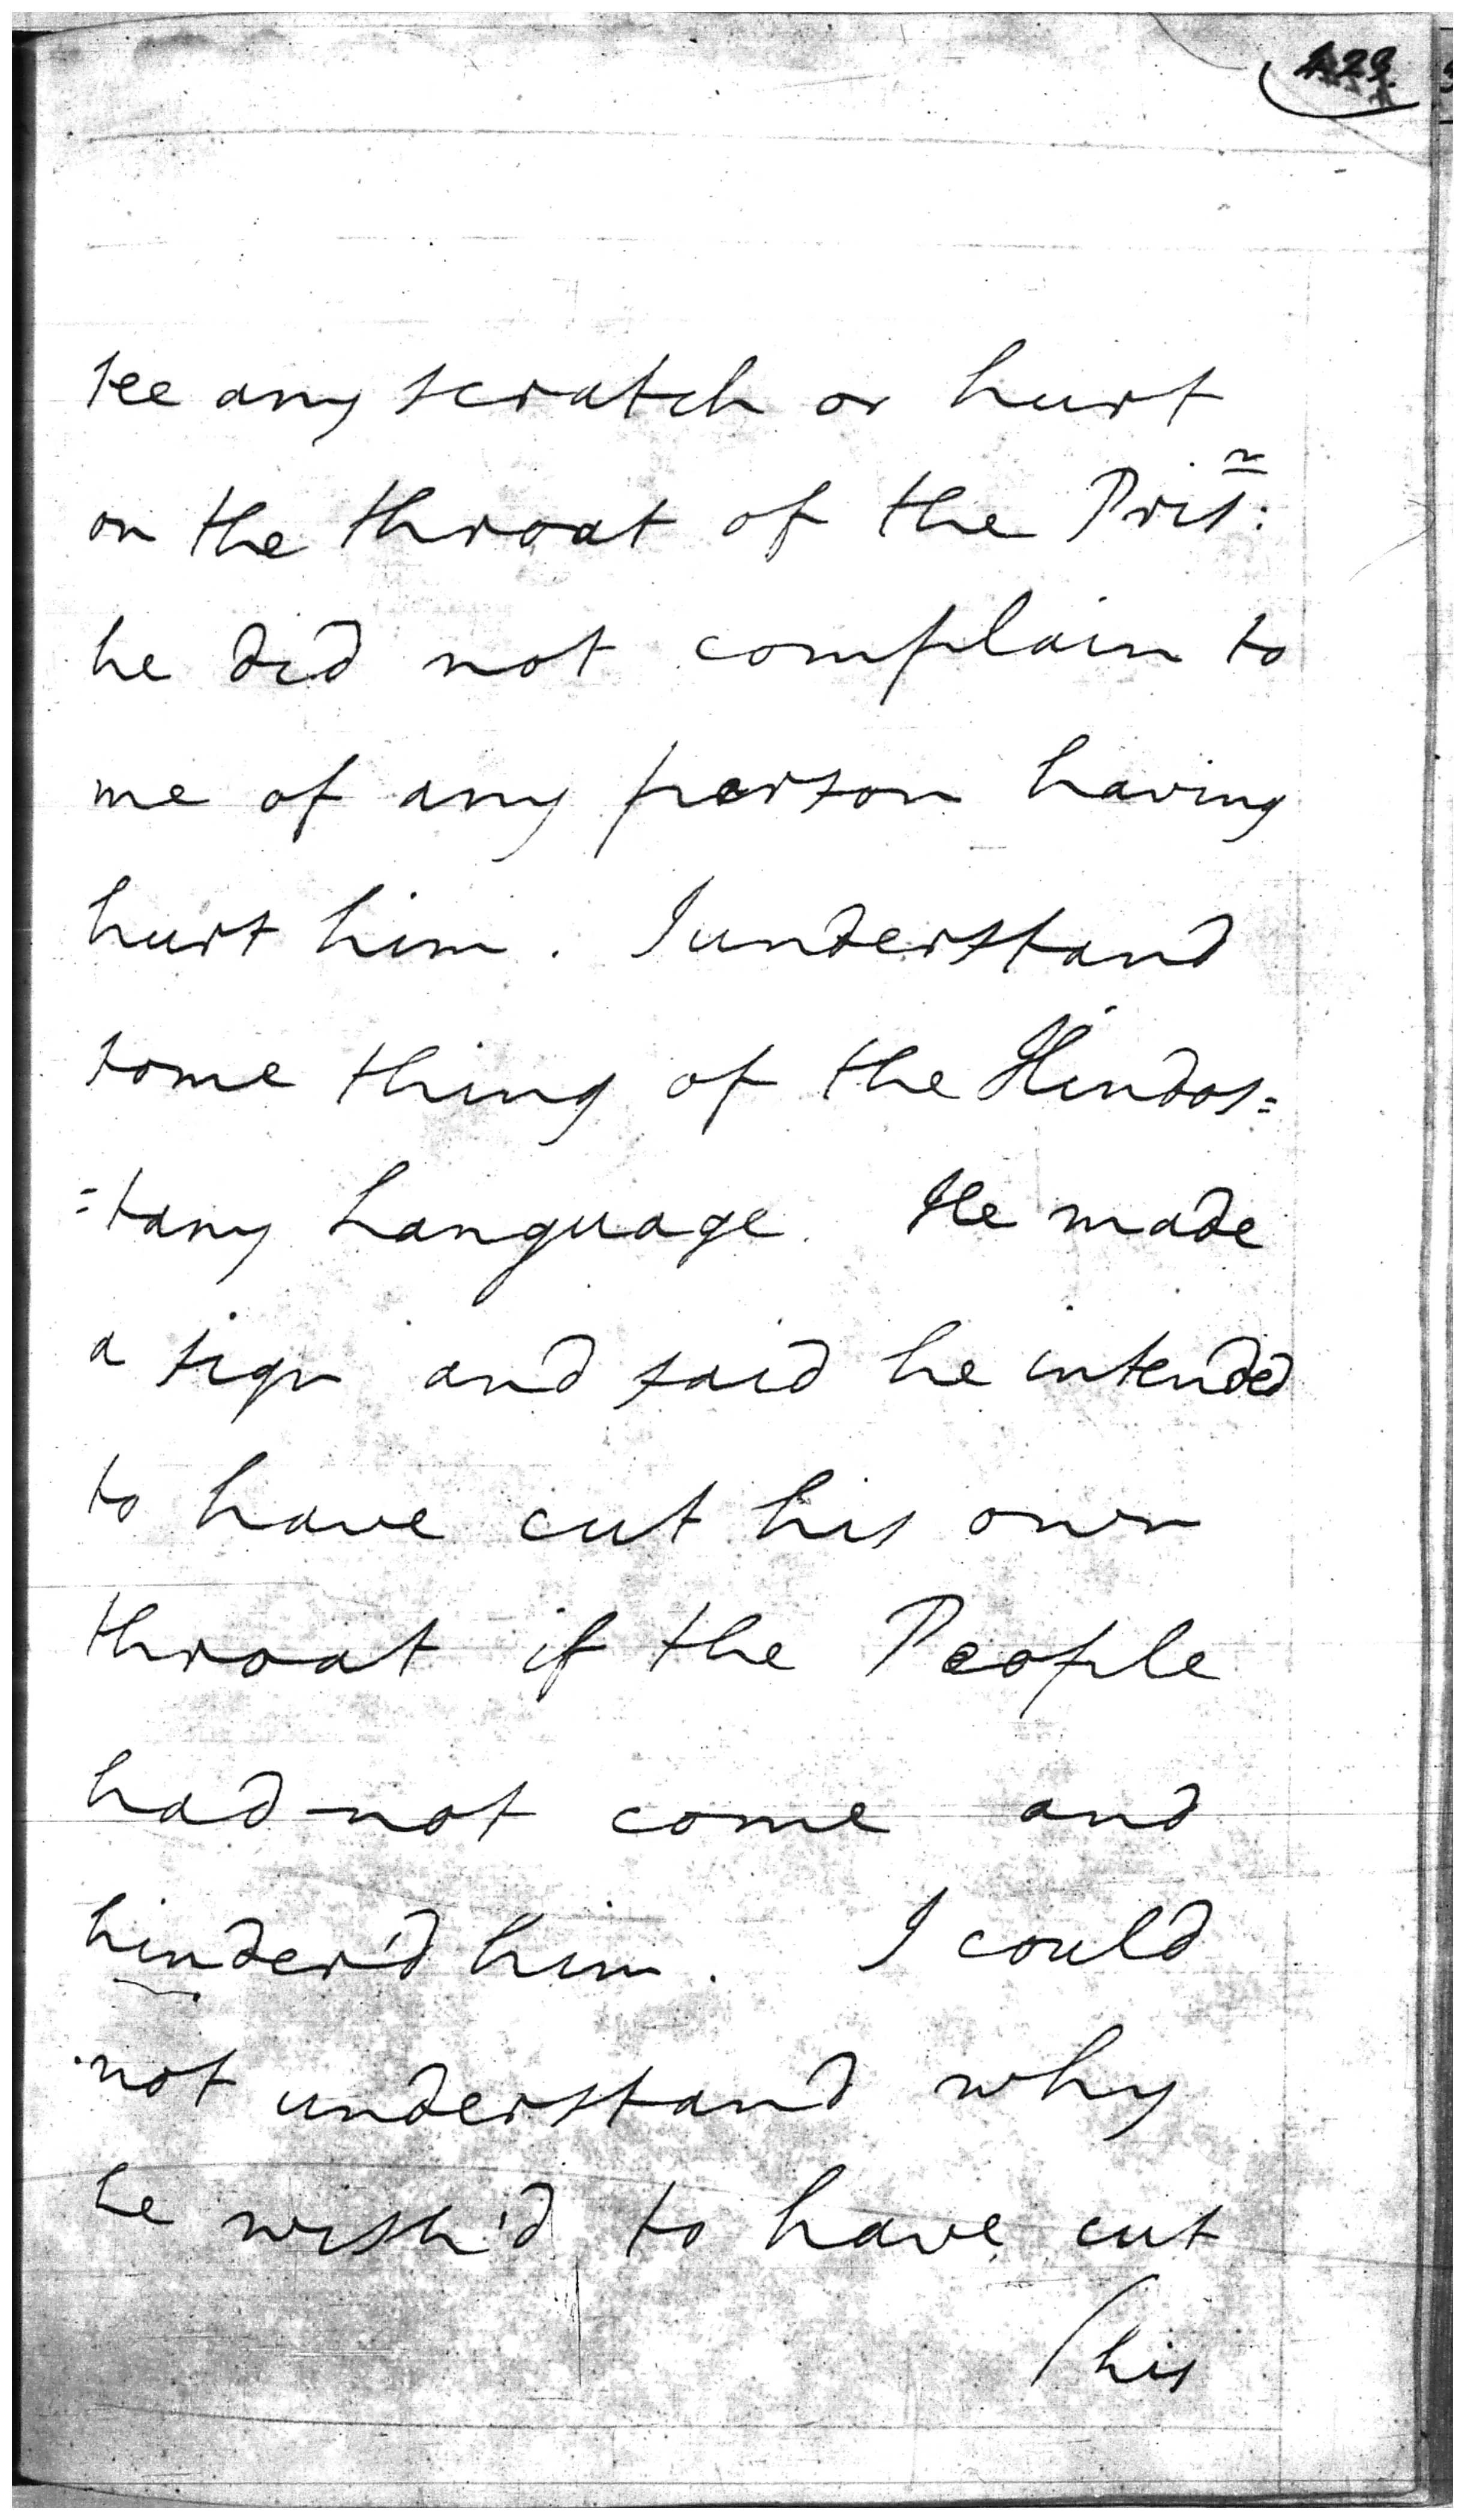 see any scratch or hurt
on the throat of the Pris:n
he did not complain to
me of any person having
hurt him. I understand
some thing of the Hindos=
=tany Language. He made
a sign and said he intended
to have cut his own
throat if the People
had not come and
hinder'd him. I could
not understand why
he wish'd to have cut
(his